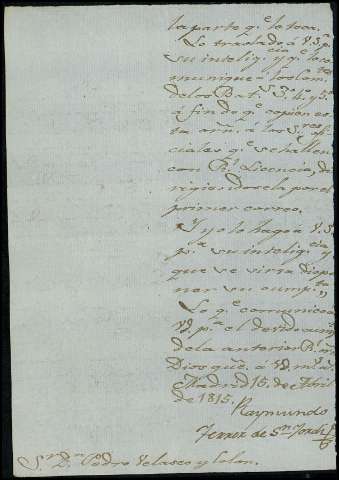 la parte q.e le toca.
Lo traslado á V.S. p.a
su intelig.cia y q.e lo co-
munique á los Com.tes
de los Bat.s 3.º 4.º y 5.º
á fin de q.e copien es-
ta orn. á los S.res ofi-
ciales q.e se hallen
con R.l Licencia, di-
rigiendosela por el
primer correo.
Y yo lo hago á V.S.
p.a su intelig.cia y
que se sirva dispo-
ner su cumpt.to
Lo q.e comunico á
Vd. p.a el devido cump.to
de la anterior R.l orn.
Dios gue. á Vd. m.s a.s
Madrid 15. de Abril
de 1815.
Raymundo
Ferrer de S.n Jordi
S.r D.n Pedro Velasco y